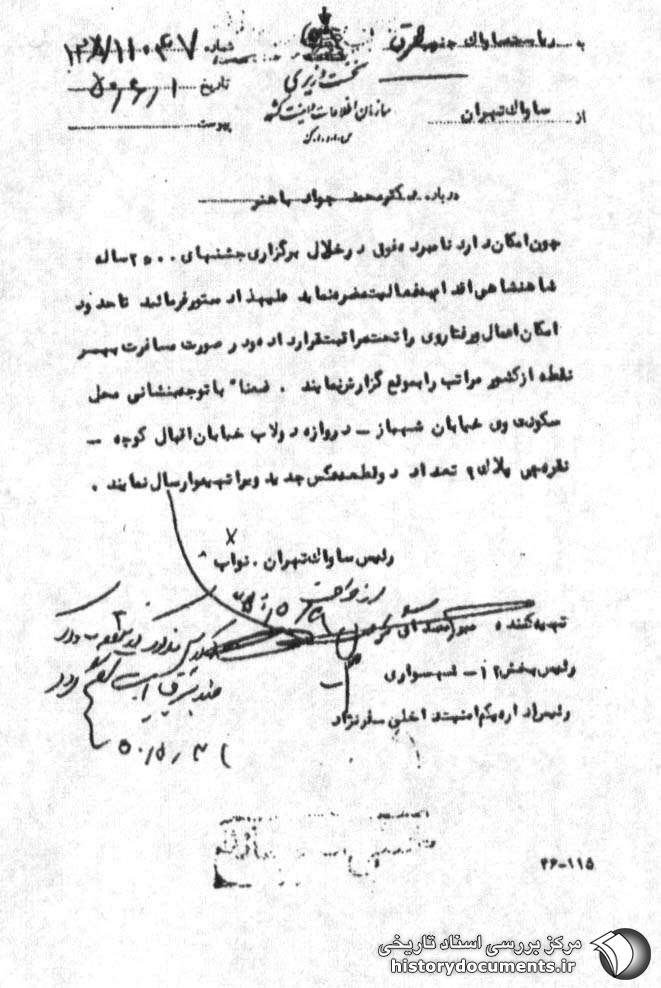 به ریاست ساواک جنوبشرق
شماره ۱۲۸/۱۱۰۴۷
نخست وزیری
تاریخ ۵۰٫۶٫۱
سازمان اطلاعات و امنیت کشور
از ساواک تهران
س.ا.و.ا.ک
پیوست
درباره دکتر محمد جواد باهنر
چون امکان دارد نامبرده فوق در خلال برگزاری جشنهای ۲۵۰۰ ساله
شاهنشاهی اقدام بفعالیت مضره نماید علیهذا دستور فرمائید تا حدود
امکان اعمال و رفتار وی را تحت مراقبت قرار داده و در صورت مسافرت بهر
نقطه از کشور مراتب را بموقع گزارش نمایند . ضمنا" با توجه بنشانی محل
سکونت وی خیابان شهباز – دروازه دولاب خیابان اقبال کوچه –
نقره‌چی پلاک ۹ تعداد دو قطعه عکس جدید ویرا تهیه و ارسال نمایند .
رئیس ساواک تهران . نواب
تهیه کننده
رئیس بخش ۱۲ – شهسواری
رئیس اداره یکم امنیت داخلی صفرنژاد
۲۶-۱۱۵
مرکز بررسی اسناد تاریخی
historydocuments.ir